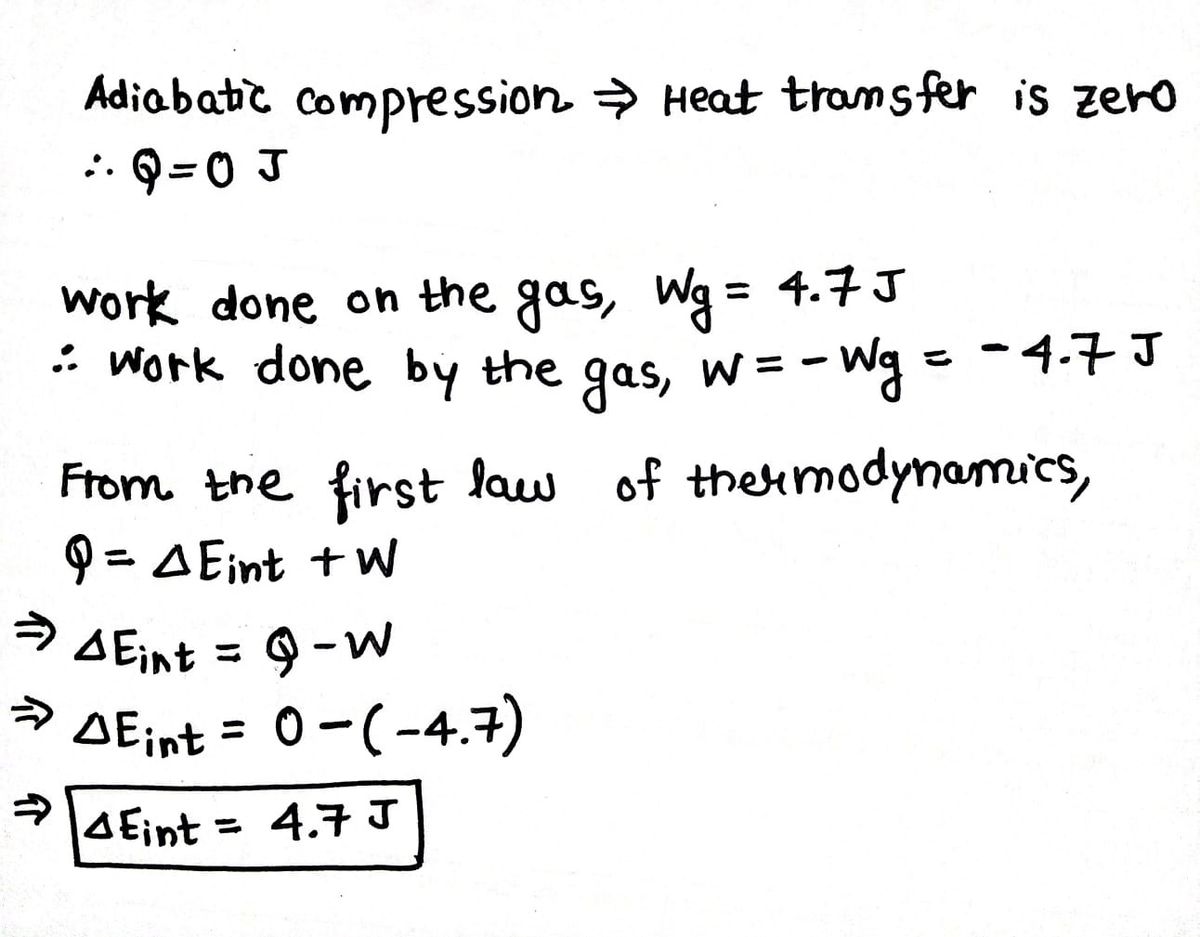 Adiabatic compression ⇒ Heat transfer is zero
∴ Q = 0 J
Work done on the gas, Wg = 4.7 J
∴ Work done by the gas, W = - Wg = - 4.7 J
From the first law of thermodynamics,
Q = ΔEint + W
⇒ ΔEint = Q - W
⇒ ΔEint = 0 - (-4.7)
⇒ ΔEint = 4.7 J